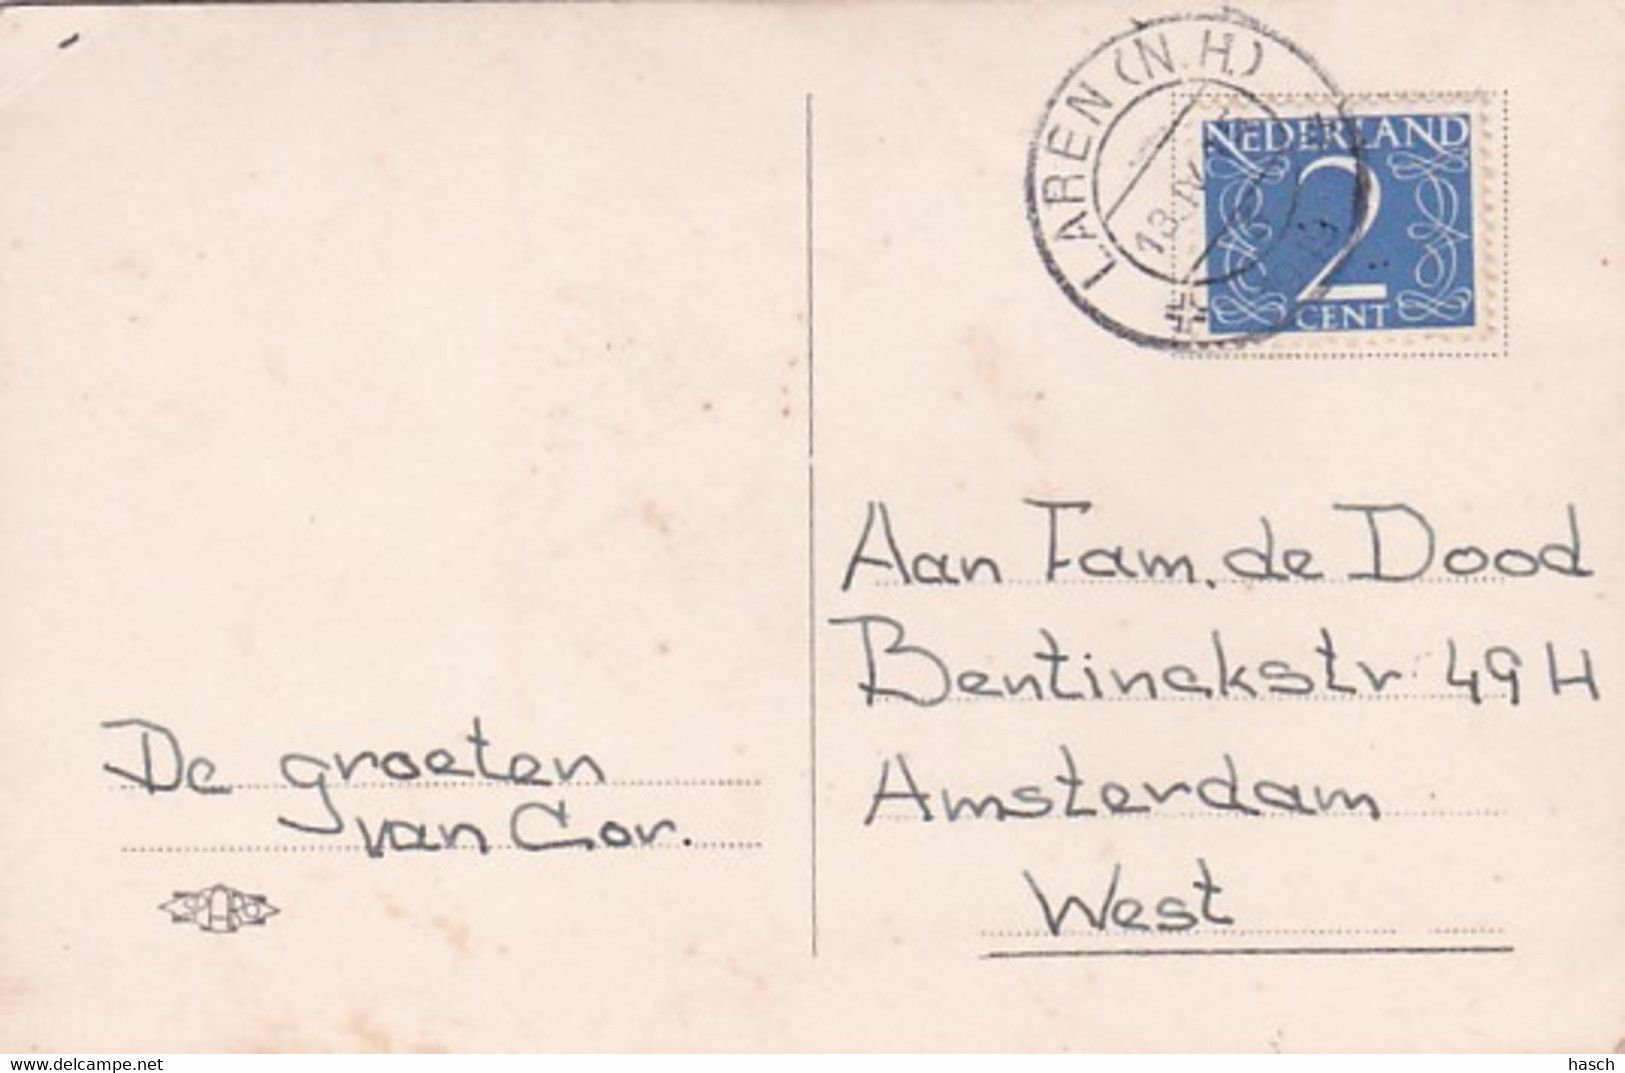 LAREN (N.H.)
NEDERLAND
2
CENT
De groeten
van Cor.
Aan Fam. de Dood
Bentinckstr 49 H
Amsterdam
West
www.delcampe.net
hasch